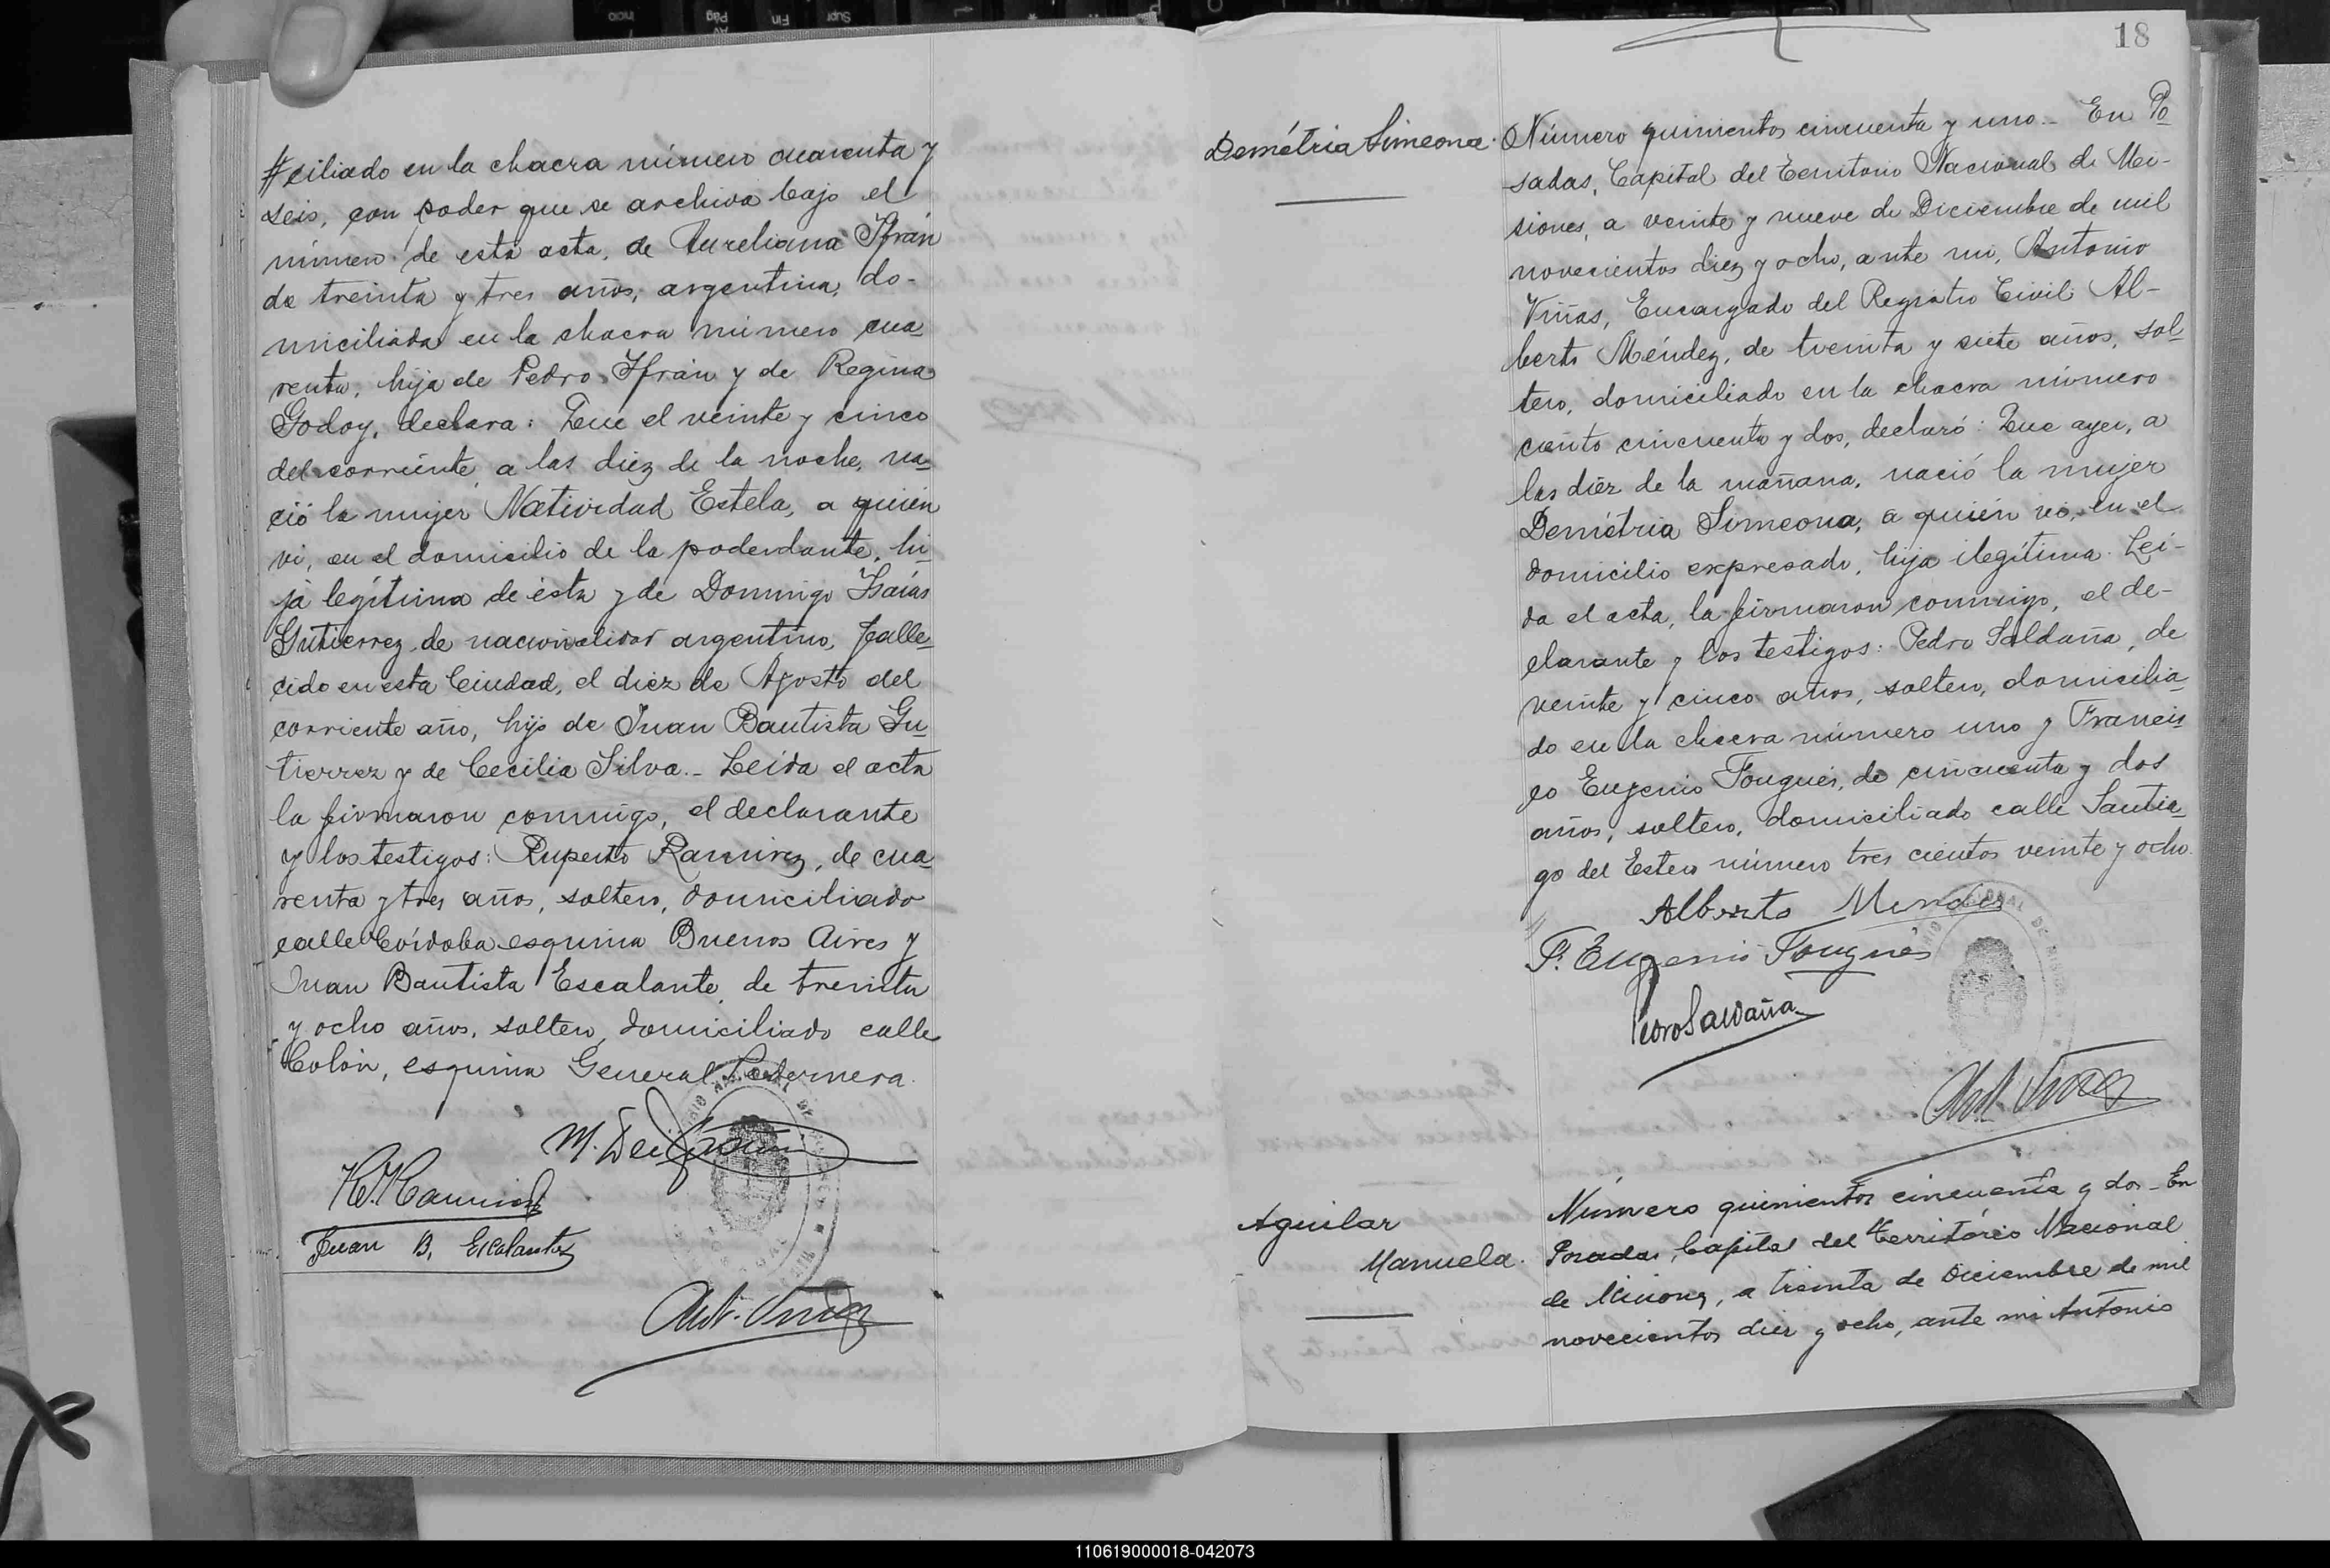 ciliado en la chacra número cuarenta y
seis, con poder que se archiva bajo el
número de esta acta, de Aureliana Ifrán
de treinta y tres años, argentina, do-
miciliada en la chacra número cua-
renta, hija de Pedro Ifrán y de Regina
Godoy, declara: Que el veinte y cinco
del corriente, a las diez de la noche, na-
ció la mujer Natividad Estela, a quién
vi, en el domicilio de la poderdante, hi-
ja legítima de ésta y de Domingo Isaías
Gutierrez, de nacionalidad argentino, falle-
cido en esta Ciudad, el diez de Agosto del
corriente año, hijo de Juan Bautista Gu-
tierrez y de Cecilia Silva.- Leída el acta
la firmaron conmigo, el declarante
y los testigos: Ruperto Ramirez, de cua-
renta y tres años, soltero, domiciliado
calle Córdoba esquina Buenos Aires y
Juan Bautista Escalante, de treinta
y ocho años, soltero, domiciliado calle
Colón, esquina General Pedernera.
Juan B. Escalante
18
Demétria Simeona.
Número quinientos cincuenta y uno.- En Po-
sadas, Capital del Territorio Nacional de Mi-
siones, a veinte y nueve de Diciembre de mil
novecientos diez y ocho, ante mi, Antonio
Viñas, Encargado del Registro Civil Al-
berto Méndez, de treinta y siete años, sol-
tero, domiciliado en la chacra número
ciento cincuenta y dos, declaró: Que ayer, a
las diez de la mañana, nació la mujer
Demétria Simeona, a quién vió, en el
domicilio expresado, hija ilegítima. Leí-
da el acta, la firmaron conmigo, el de-
clarante y los testigos: Pedro Saldaña, de
veinte y cinco años, soltero, domicilia-
do en la chacra número uno y Francis-
co Eugenio Fougués, de cincuenta y dos
años, soltero, domiciliado calle Santia-
go del Estero número tres cientos veinte y ocho.
Alberto Mendez
F. Eugenio Fougnés
Pedro Saldaña
Ant. Viñas
Aguilar
Manuela.
Número quinientos cincuenta y dos - En
Posadas, Capital del Territorio Nacional
de Misiones, a treinta de Diciembre de mil
novecientos diez y ocho, ante mi Antonio
110619000018-042073